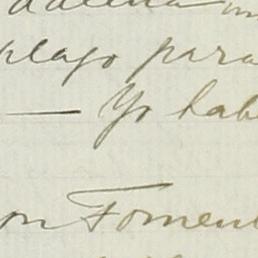 plazo para
— Yo hab
on Foment